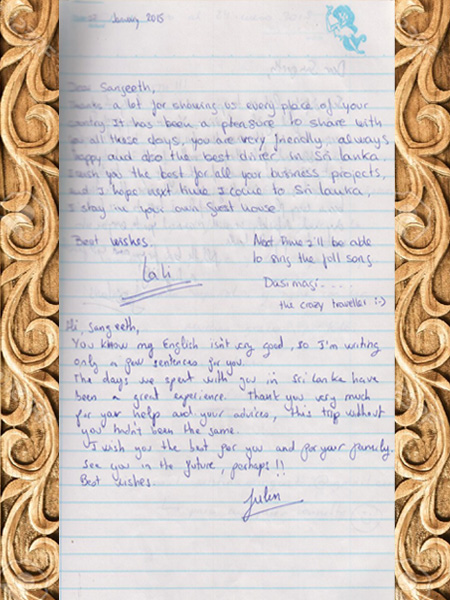 January 2015
Dear Sangeeth,
Thanks a lot for showing us every place of your
country. It has been a pleasure to share with
you all these days, you are very friendly, always
happy and also the best driver in Sri lanka
I wish you the best for all your business projects,
and I hope next time I come to Sri lanka,
I stay in your own guest house.
Best wishes.
Lali
Next time I'll be able
to sing the full song
Dasi masi....
the crazy traveller :-)
Hi, Sangeeth,
You know my English isn't very good, so I'm writing
only a few sentences for you.
The days we spent with you in Sri Lanka have
been a great experience. Thank you very much
for your help and your advices, this trip without
you hadn't been the same.
I wish you the best for you and for your family.
see you in the future, perhaps!!
Best wishes.
Julen